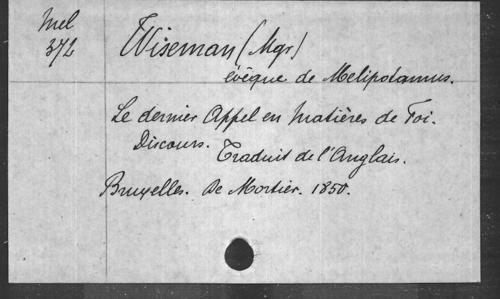 Mel
372
Wiseman (Mgr)
évêque de Melipotamus.
Le dernier Appel en Matières de Foi.
Discours. Traduit de l'Anglais.
Bruxelles. De Mortier. 1850.